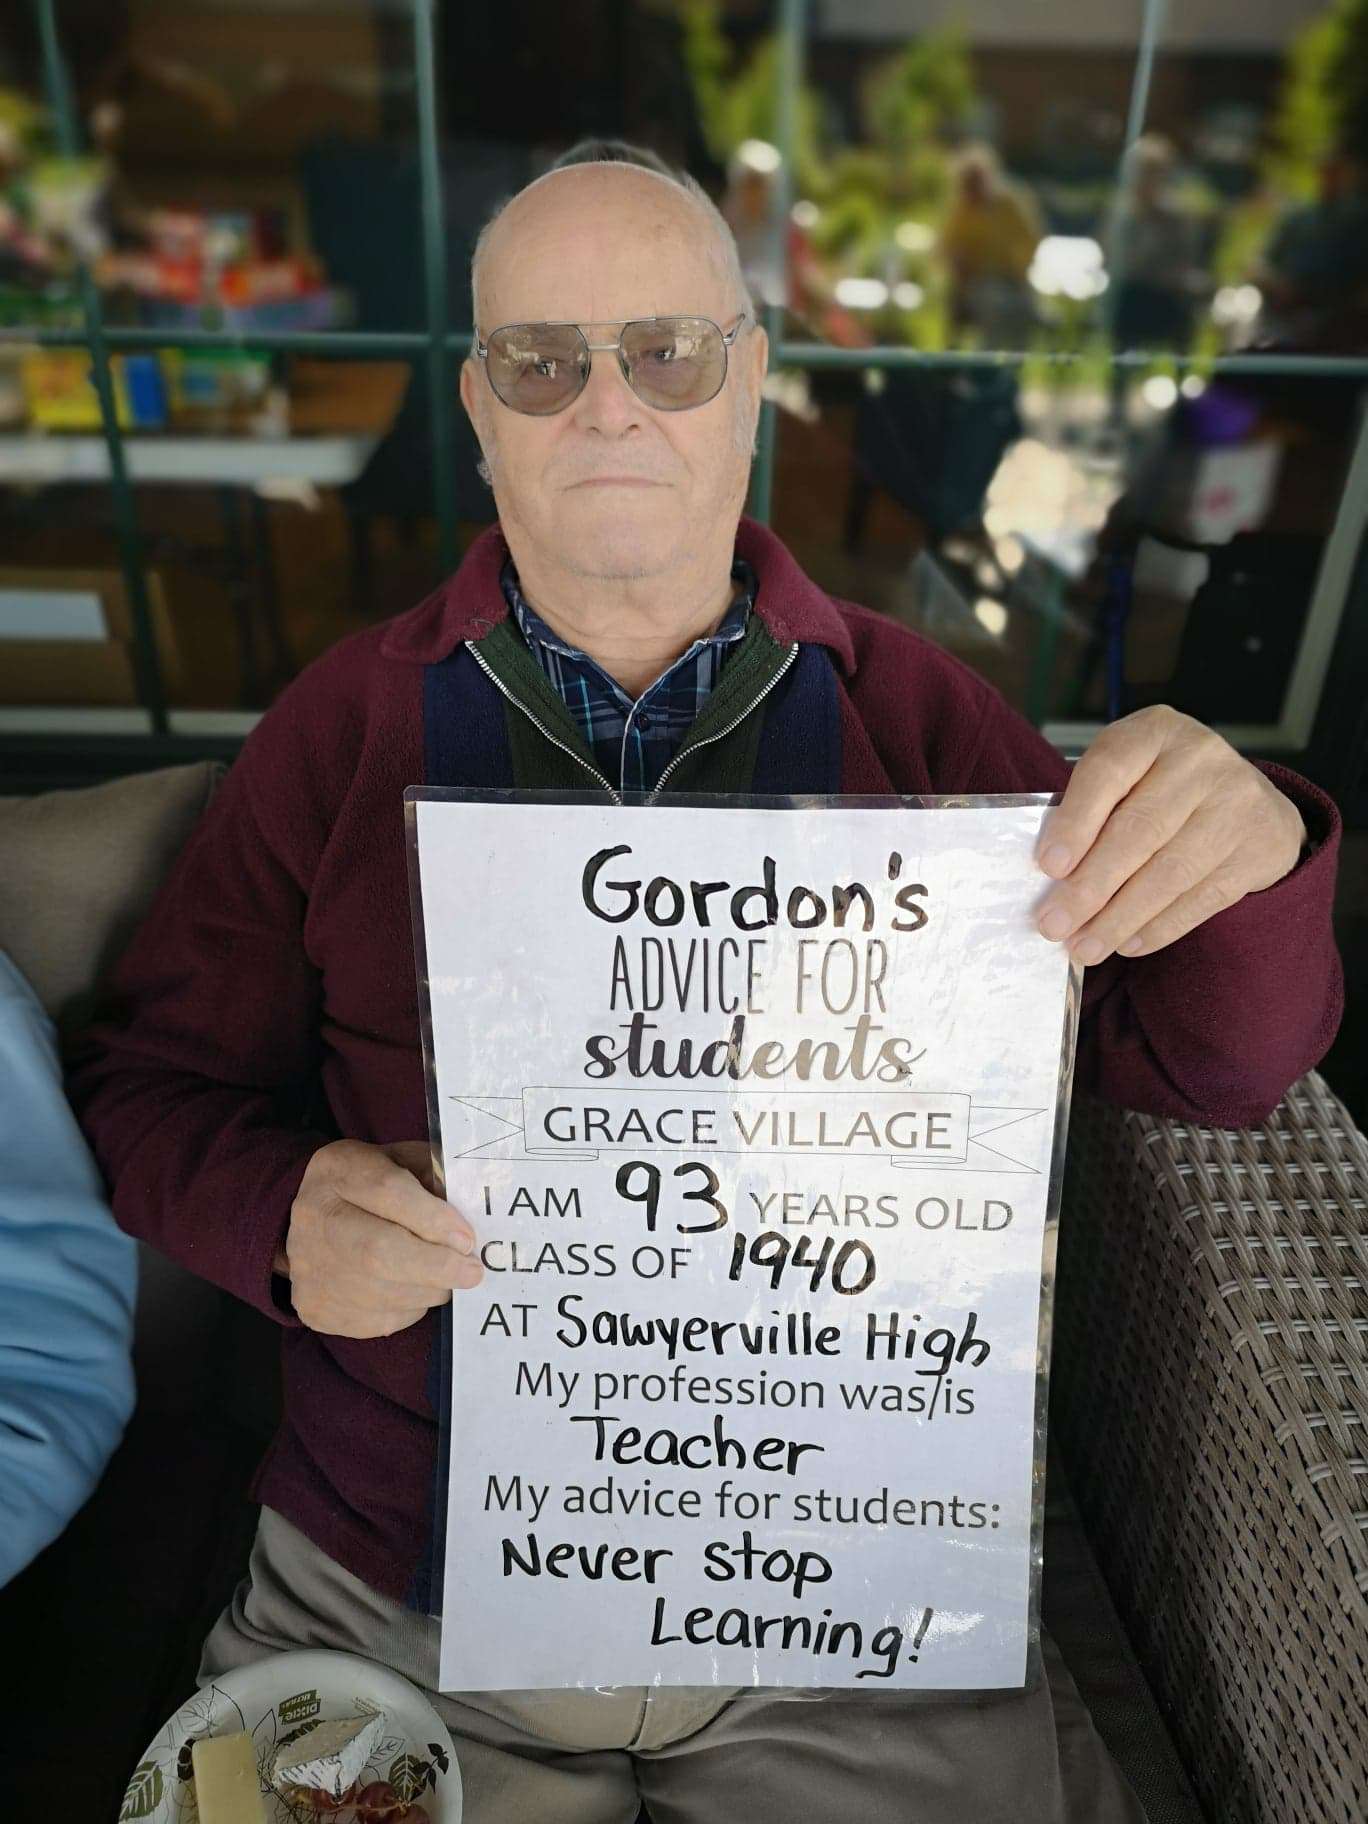 Gordon's
ADVICE FOR
students
GRACE VILLAGE
I AM 93 YEARS OLD
CLASS OF 1940
AT Sawyerville High
My profession was/is
Teacher
My advice for students:
Never stop
Learning!
DIXIE
ULTRA